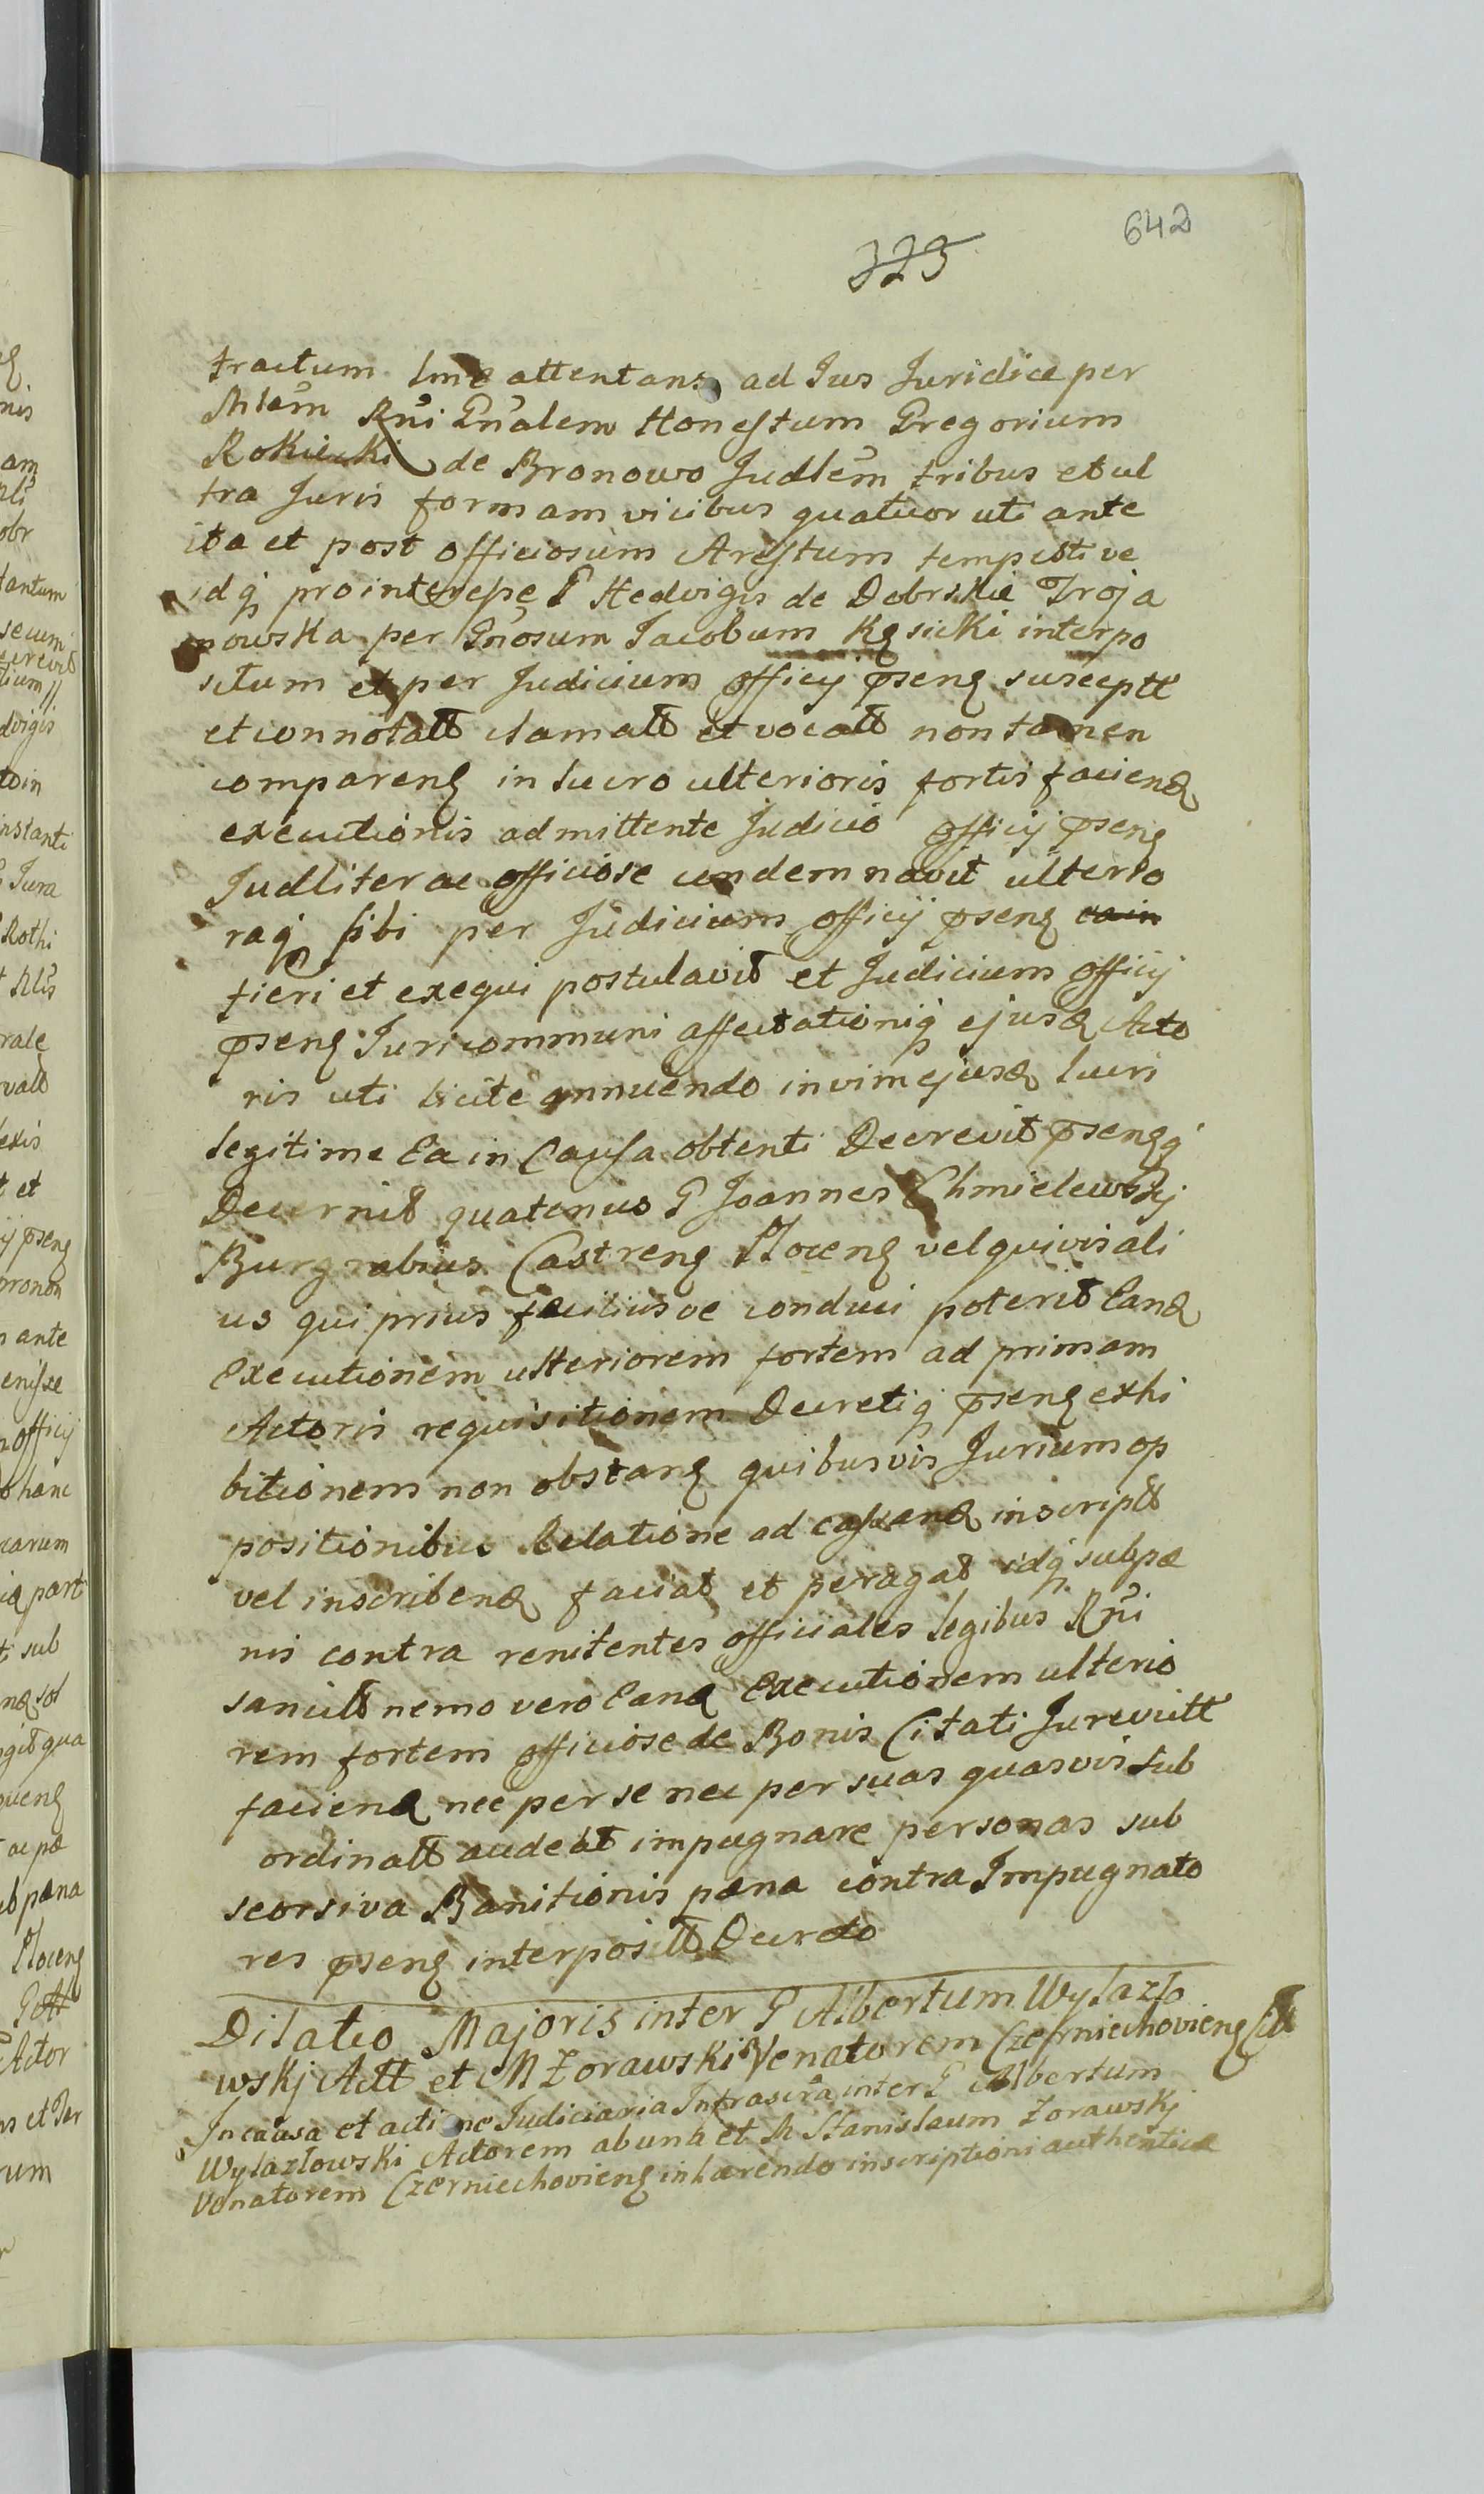 642
323
tractum attentans ad Jus Juridice per
Mlem Rni Gnalem Honestum Gregorium
Rokicki de Bronowo Judlem tribus et ul
tra Juris formam vicibus quatuor uti ante
ita et post officiosum Arestum tempestive
idq pro interesse G Hedvigis de Debrskie Troja
nowska per Gnosum Jacobum Kęsicki interpo
situm et per Judicium officij psenꝫ suscepttt
et connotatt clamatt et vocatt non tamen
comparenꝫ in lucro ulterioris fortis faciend
executionis admittente Judicio officij psenꝫ
Judliter ac officiose condemnavit ulterio
raq sibi per Judicium officij psenꝫ
fieri et exequi postulavit et Judicium officij
psenꝫ Juri communi affectationiq ejusd Acto
ris uti licite annuendo in vim ejusd lucri
legitime Ea in Causa obtenti Decrevit psenꝫq
Decernit quatenus G Joannes Chmielewskj
Burgrabius Castrenꝫ Plocenꝫ vel quivis ali
us qui prius faciliusve conduci poterit Eand
Executionem ulteriorem fortem ad primam
Actoris requisitionem Decretiq psenꝫ exhi
bitionem non obstanꝫ quibusvis Jurium op
positionibus Celatione ad cassand inscriptt
vel inscribend faciat et peragat idq sub pæ
nis contra renitentes officiales legibus Rni
sancitt nemo vero Eand Executionem ulterio
rem fortem officiose de Bonis Citati Jurevictt
faciend nec per se nec per suas quasvis sub
ordinatt audeat impugnare personas sub
seorsiva Banitionis pæna contra Impugnato
res psenꝫ interpositt Decreto
Dilatio Majoris inter G Albertum Wylazło
wskj Actt et M Zorawski Venatorem Czerniechovienꝫ Ctt
In causa et actione Judiciaria Infrascra inter G Albertum
Wylazlowski Actorem ab una et M Stanislaum Zorawskj
Venatorem Czerniechovienꝫ inhærendo inscriptioni authenticæ